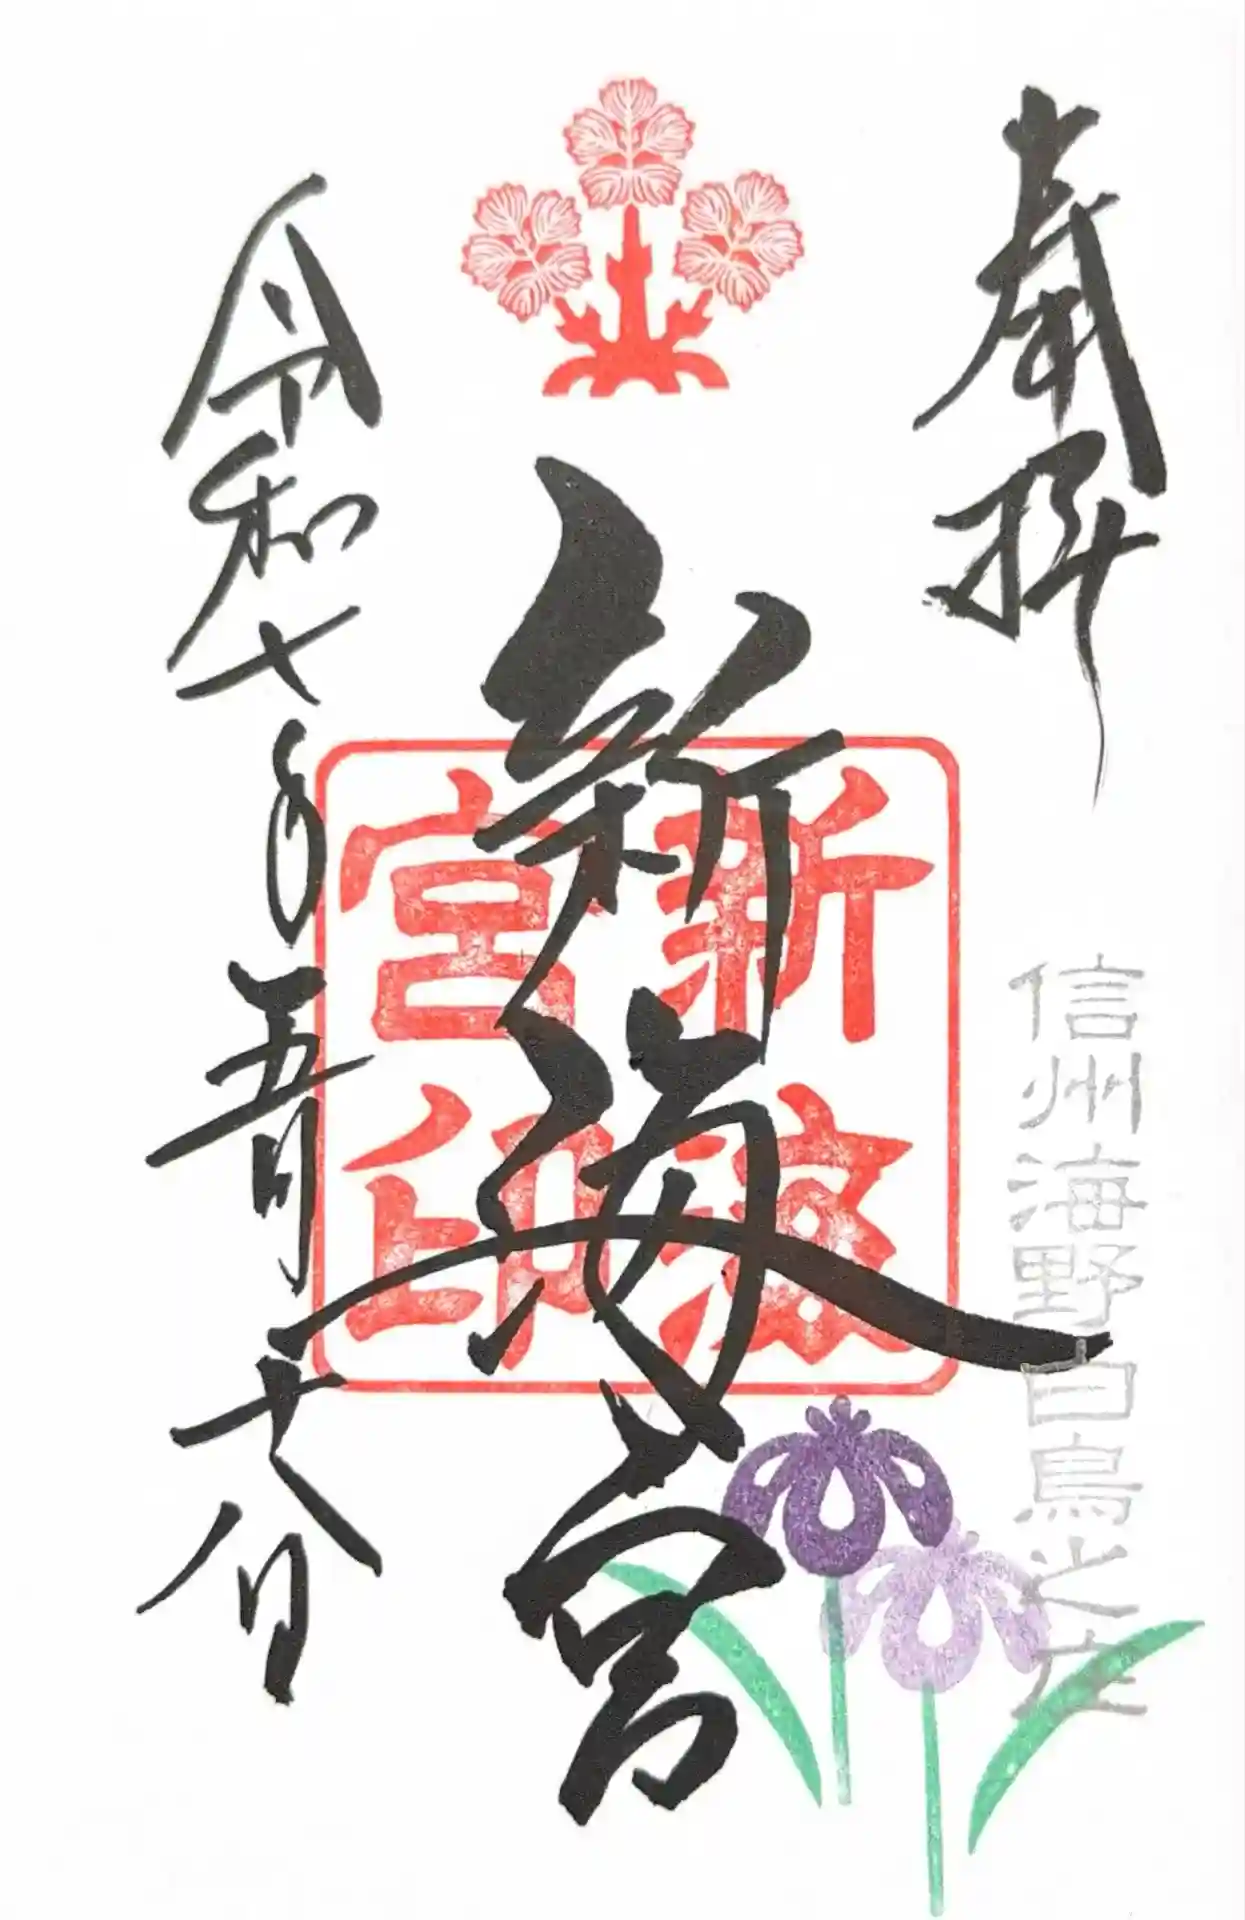 奉拝
信州海野白鳥之庄
新海宮
新海宮印
令和七年五月二十八日